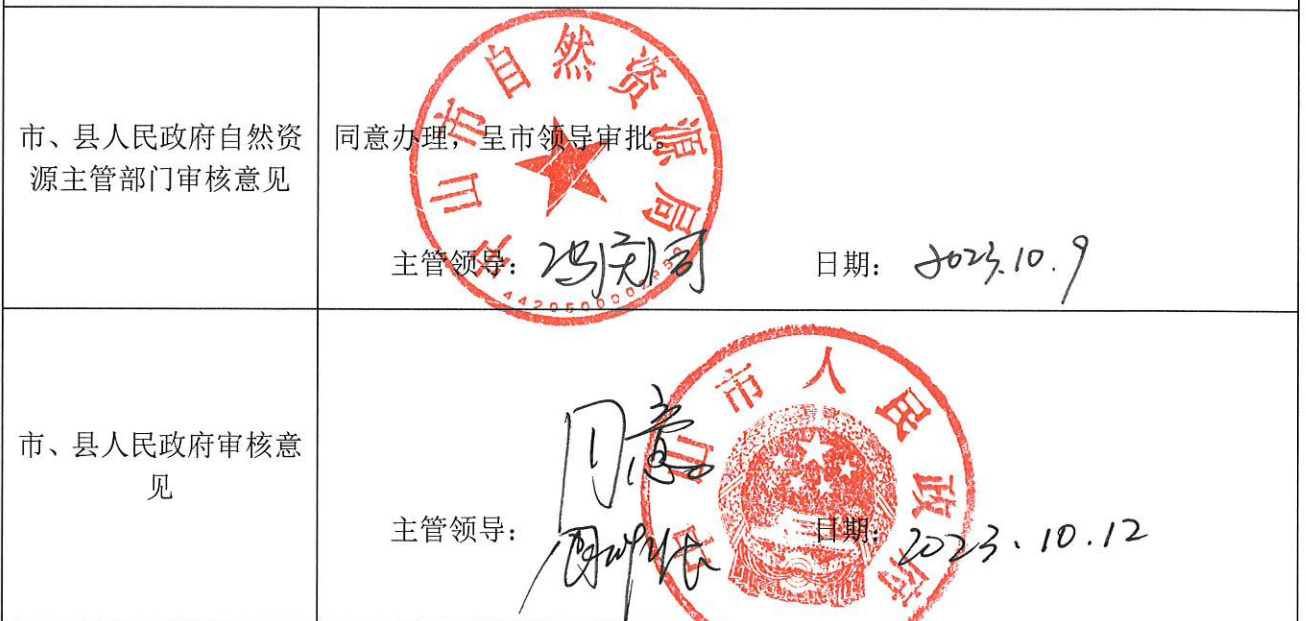 市、县人民政府自然资
源主管部门审核意见
同意办理，呈市领导审批。
中山市自然资源局
主管领导：
日期： 2023.10.9
市、县人民政府审核意
见
同意
中山市人民政府
主管领导：
日期： 2023.10.12